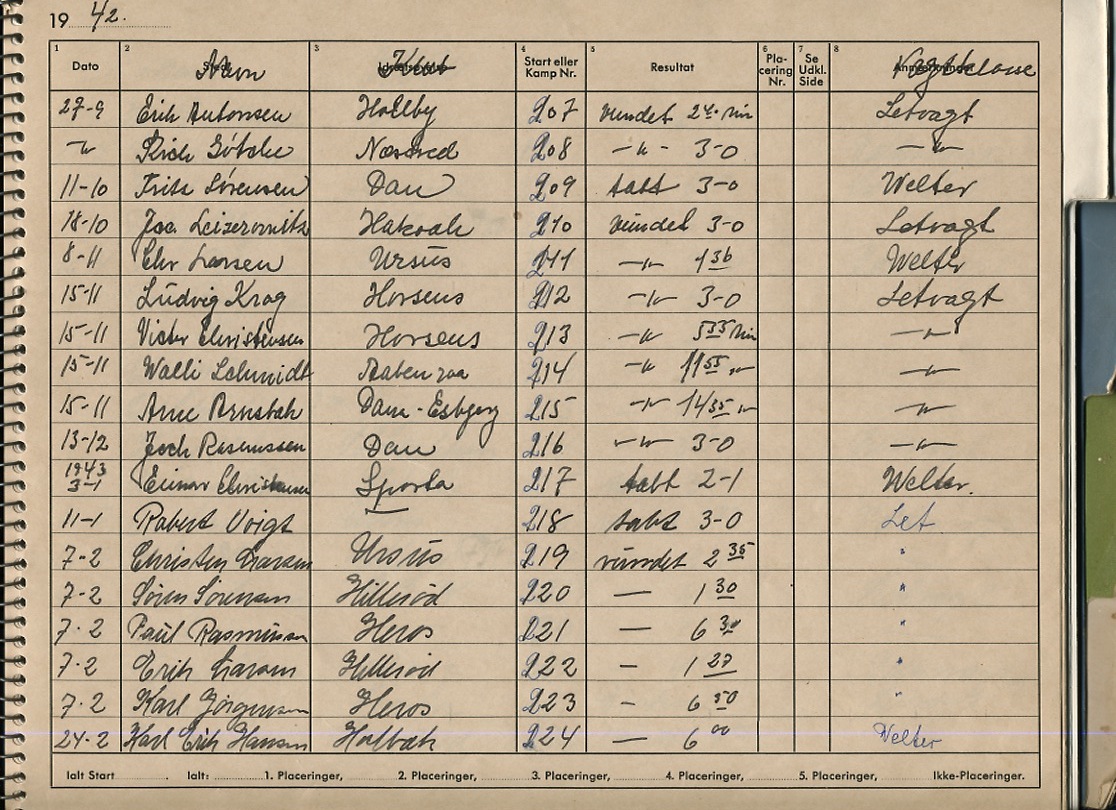 19 42.
1 2 3 4 5 6 7 8
Dato Navn Klub Start eller Kamp Nr. Resultat Placering Nr. Se Udkl. Side Vægtklasse
27-9 Erik Antonsen Hallby 207 vundet 24. Min Letvægt
-"- Erich Götche Næstved 208 -"- 3-0 -"-
11-10 Fritz Sørensen Dan 209 tabt 3-0 Welter
18-10 Jos. Leizerovnitz Hakoah 210 vundet 3-0 Letvægt
8-11 Chr Larsen Ursus 211 -"- 1 36 Welter
15-11 Ludvig Krag Horsens 212 -"- 3-0 Letvægt
15-11 Victor Christensen Horsens 213 -"- 5 35 Min -"-
15-11 Walli Schmidt Aabenraa 214 -"- 11 55 " -"-
15-11 Arne Arnsbah Dane-Esbjerg 215 -"- 14 35 " -"-
13-12 Joch Rasmussen Dan 216 -"- 3-0 -"-
1943
3-1 Einar Christensen Sparta 217 tabt 2-1 Welter.
11-1 Robert Voigt — 218 tabt 3-0 Let
7-2 Christen Larsen Ursus 219 vundet 2 35 "
7-2 Søren Sørensen Hillerød 220 — 1 30 "
7-2 Paul Rasmussen Heros 221 — 6 30 "
7-2 Erik Larsen Hillerød 222 — 1 27 "
7-2 Karl Jørgensen Heros 223 — 6 50 "
24-2 Karl Erik Hansen Holbæk 224 — 6 00 Welter
Ialt Start Ialt: 1. Placeringer, 2. Placeringer, 3. Placeringer, 4. Placeringer, 5. Placeringer, Ikke-Placeringer.